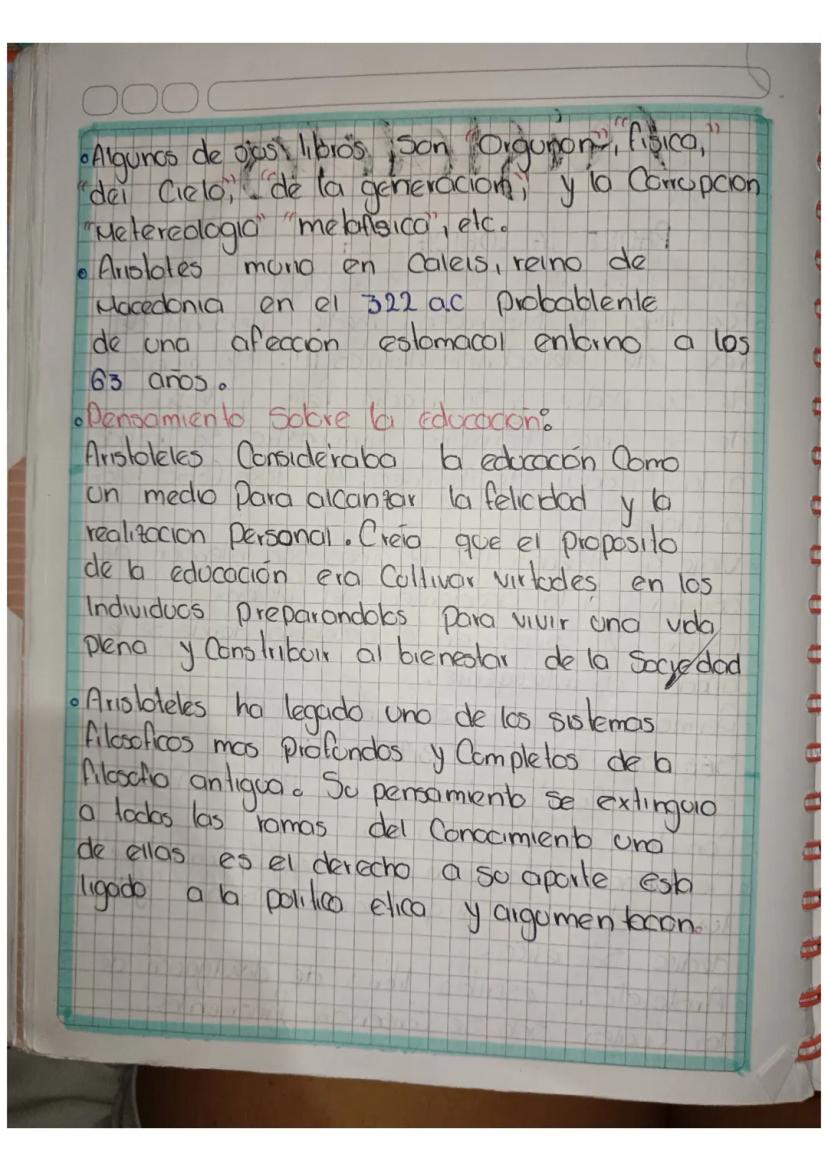 •Algunos de sus libros, son "Organon", "fisica,"
"del Cielo", "de la generacion", y la Corrupcion
"Metereologia" "metafisica", etc.
• Aristotes murio en Caleis, reino de
Macedonia en el 322 a.c probablente
de una afección estomacal entorno a los
63 años.
•Pensamiento Sobre la educacion:
Aristoteles Consideraba la educación Como
un medio Para alcanzar la felicidad y la
realizacion Personal. Creia que el proposito
de la educación era Cultivar virtudes en los
Individuos preparandolos para vivir una vida
plena y Constribuir al bienestar de la Sociedad
• Aristoteles ha legado uno de los sistemas
filosoficos mas profundos y Completos de la
filosofia antigua. Su pensamiento se extinguio
a todas las ramas del Conocimiento una
de ellas es el derecho a su aporte esta
ligado a la politica etica y argumentacion.